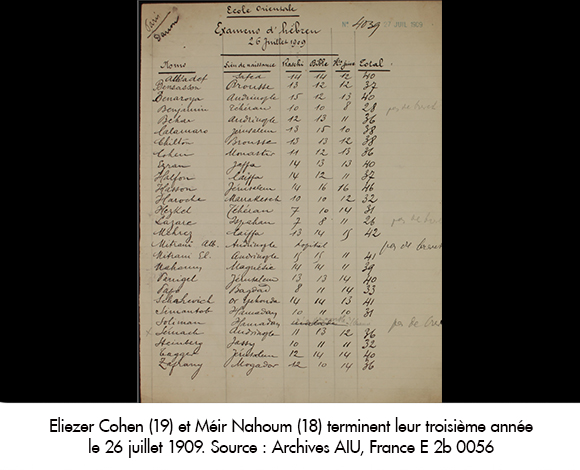 Ecole Orientale
N° 4039 27 JUIL 1909
Paris
Examens d'hébreu
26 juillet 1909
Noms Lieu de naissance Raschi Bible Total
Albadof Safed 14 14 12 40
Benzasson Brousse 13 12 12 37
Benaroya Andrinople 15 12 13 40
Benjamin Téhéran 10 10 8 28 pas de brevet
Behar Andrinople 12 13 11 36
Calamaro Jérusalem 13 15 10 38
Chillon Brousse 13 13 12 38
Cohen Monastir 11 12 13 36
Ezran Jaffa 14 13 13 40
Halfon Caiffa 14 12 11 37
Hasson Jérusalem 14 16 16 46
Haroche Marrakesch 10 10 12 32
Hezkel Téhéran 7 10 14 31
Lazare Ispahan 7 8 11 26 pas de brevet
Mehrez Caiffa 13 14 15 42
Mitrani Alb. Andrinople hopital pas de brevet
Mitrani El. Andrinople 15 15 11 41
Nahoum Magnésie 14 14 11 39
Jérusalem 13 13 14 40
Papo Bagdad 8 11 14 33
Schakevich or Yehouda 14 14 13 41
Simantob Hamadan 10 11 10 31
Soliman Hamadan pas de brevet
Semach Andrinople 11 13 12 36
Steinberg Jassy 10 11 11 32
Tagger Jérusalem 12 14 14 40
Zafrany Mogador 12 10 14 36
Eliezer Cohen (19) et Méir Nahoum (18) terminent leur troisième année
le 26 juillet 1909. Source : Archives AIU, France E 2b 0056